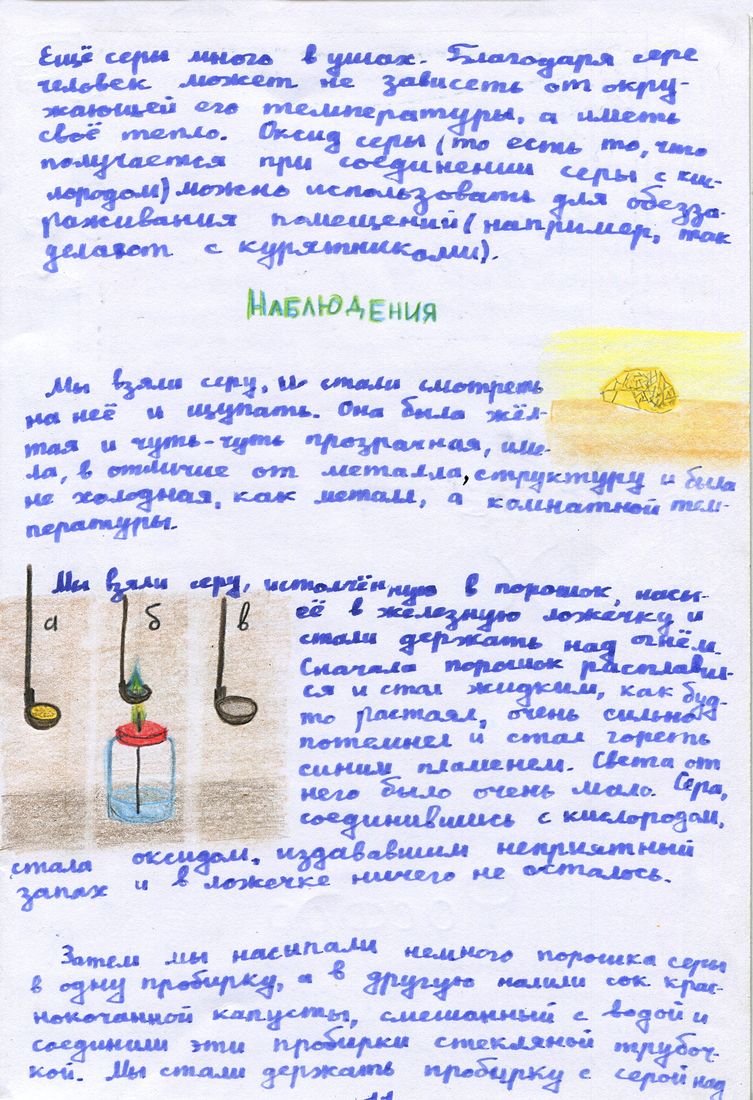 Ещё серы много в ушах. Благодаря сере
человек может не зависеть от окру-
жающей его температуры, а иметь
своё тепло. Оксид серы (то есть то, что
получается при соединении серы с кис-
лородом) можно использовать для обезза-
раживания помещений (например, так
делают с курятниками).
НАБЛЮДЕНИЯ
Мы взяли серу, и стали смотреть
на неё и щупать. Она была жёл-
тая и чуть-чуть прозрачная, име-
ла, в отличие от металла, структуру и была
не холодная, как метал, а комнатной тем-
пературы.
Мы взяли серу, истолчённую в порошок, насы-
её в железную ложечку и
стали держать над огнём.
Сначала порошок расплавил-
ся и стал жидким, как буд-
то растаял, очень сильно
потемнел и стал гореть
синим пламенем. Света от
него было очень мало. Сера,
соединившись с кислородом,
стала оксидом, издававшим неприятный
запах и в ложечке ничего не осталось.
а
б
в
Затем мы насыпали немного порошка серы
в одну пробирку, а в другую налили сок крас-
нокочанной капусты, смешанный с водой и
соединили эти пробирки стекляной трубоч-
кой. Мы стали держать пробирку с серой над